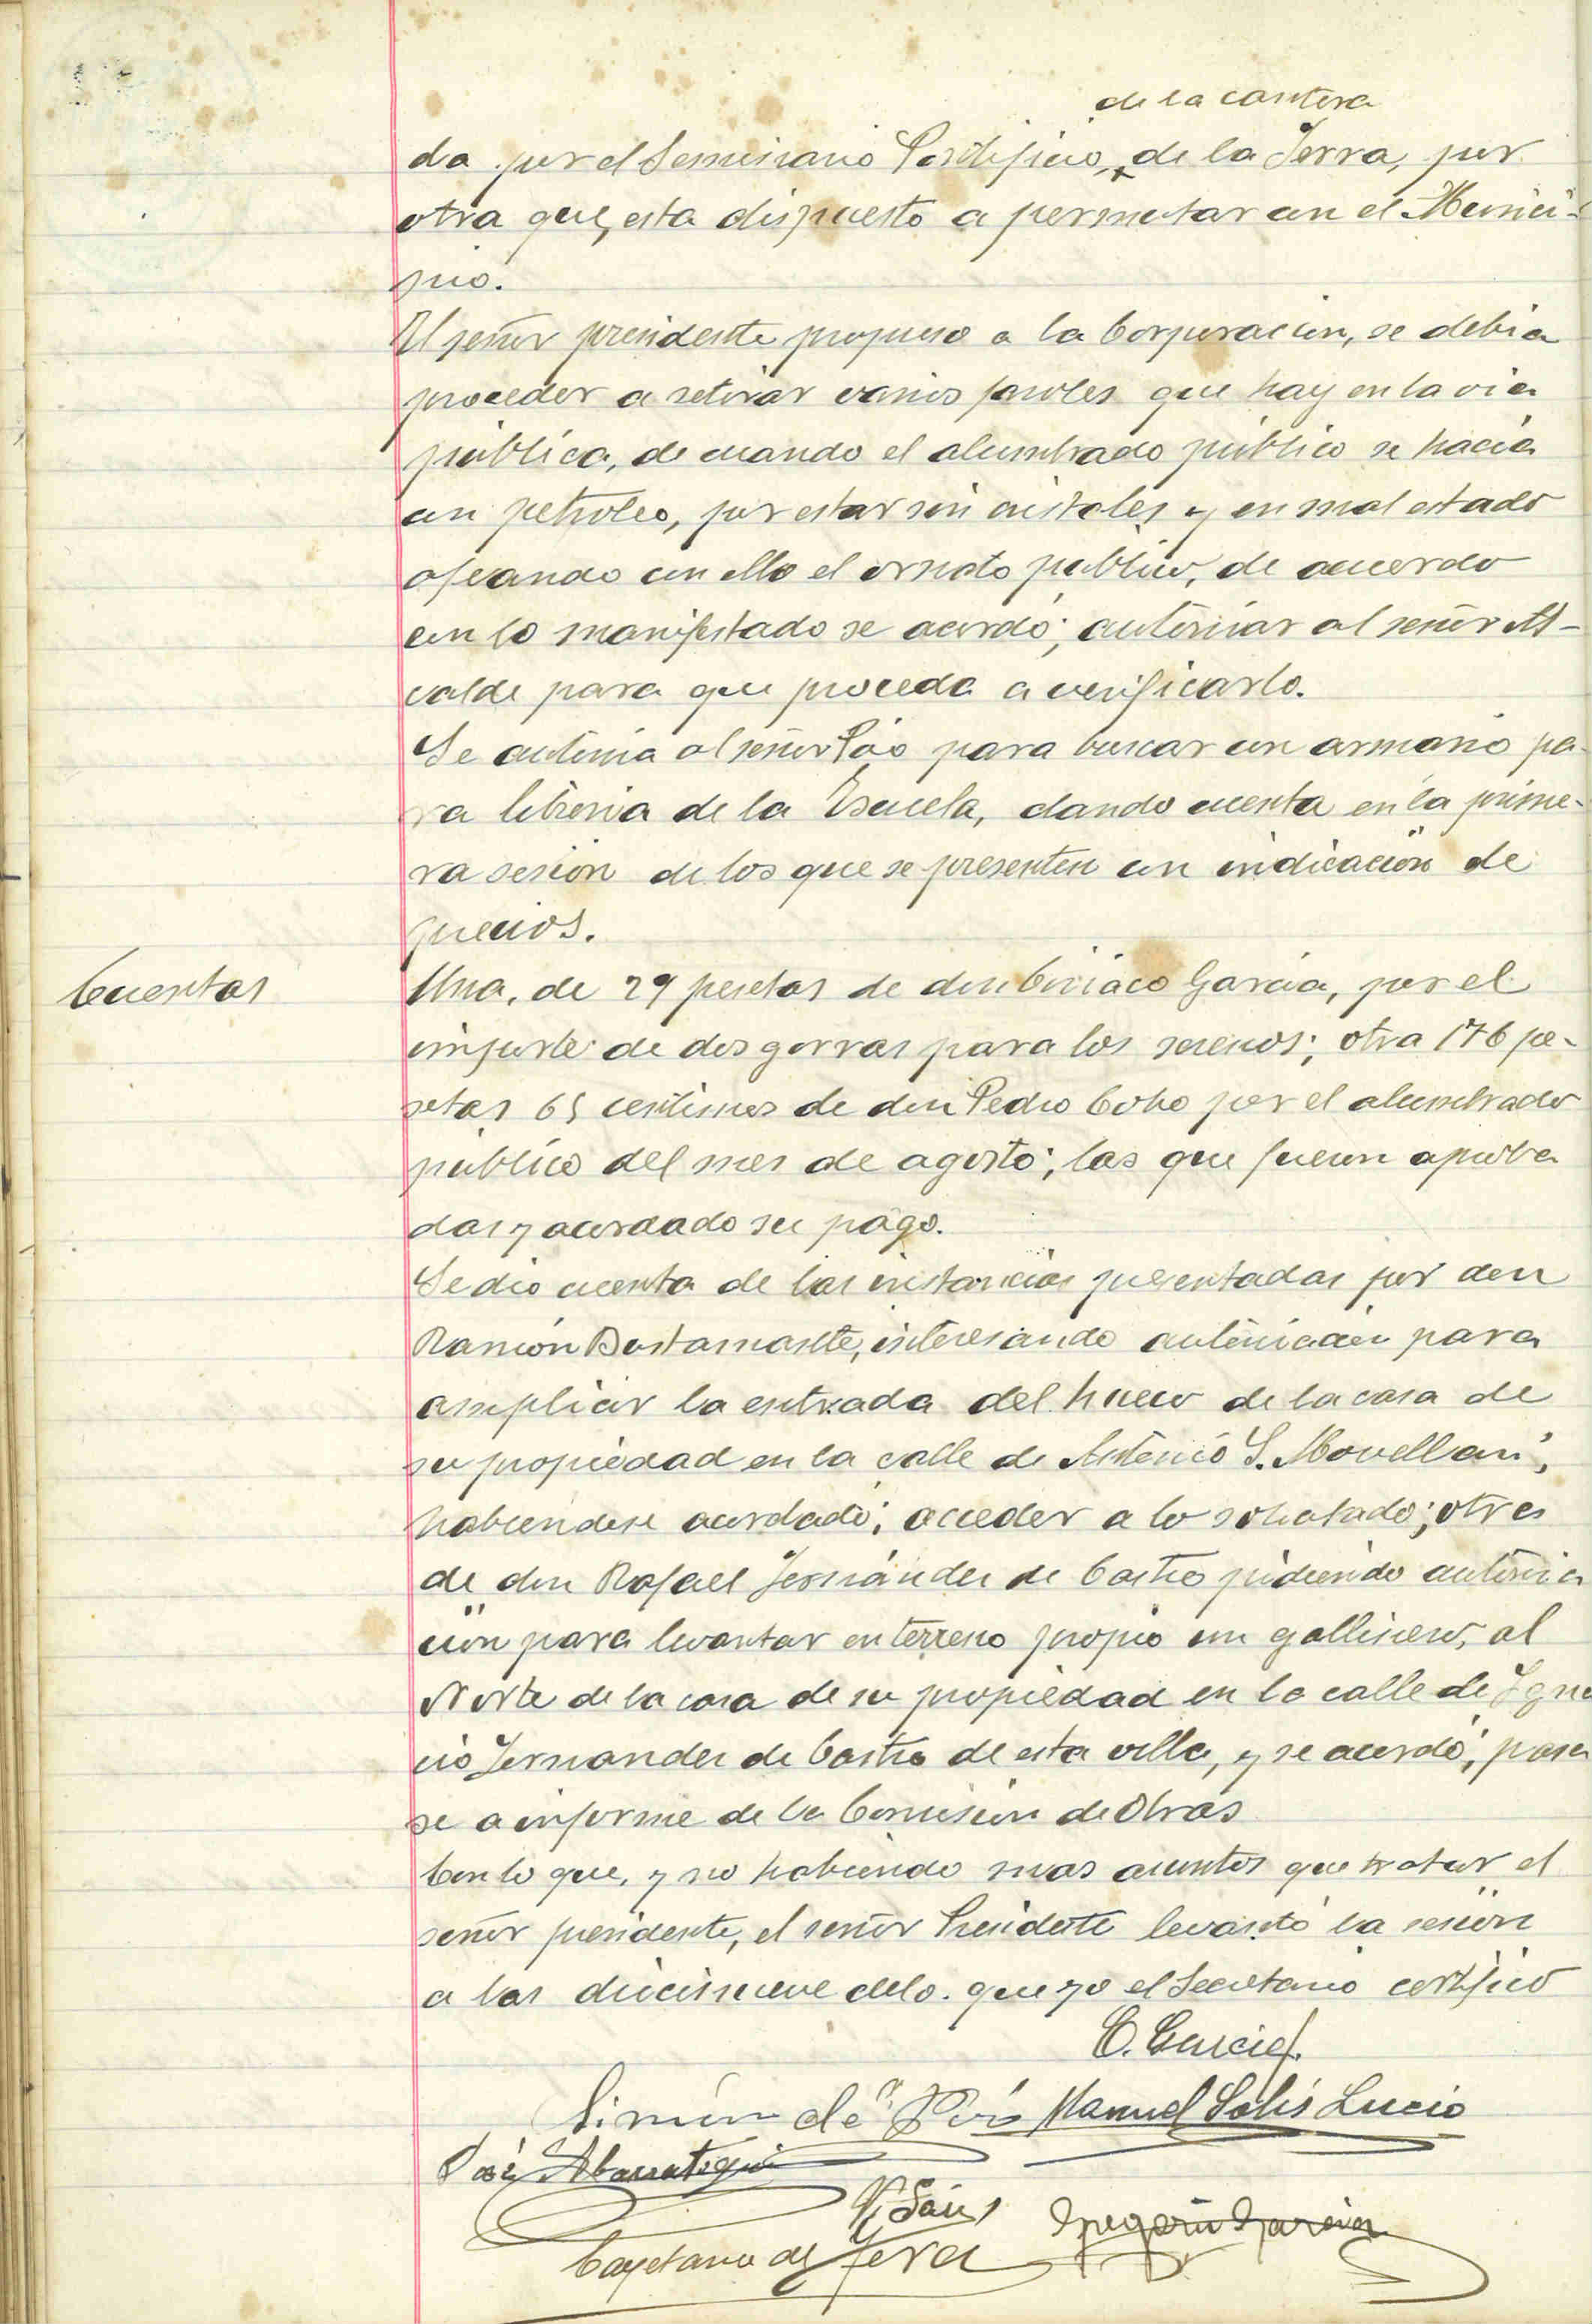 de la cantera
da por el Seminario Pontificio, de la Serra, por
otra que, esta dispuesto a permutar con el Munici-
pio.
El señor presidente propuso a la Corporacion, se debia
proceder a retirar varios faroles que hay en la via
pública, de cuando el alumbrado público se hacia
con petroleo, por estar sin cristales y en mal estado
afeando con ello el ornato publico, de acuerdo
con lo manifestado se acordó; autorizar al señor Al-
calde para que proceda a verificarlo.
Se autoriza al señor Pío para buscar un armario pa-
ra libreria de la Escuela, dando cuenta en la prime-
ra sesión de los que se presenten con indicación de
precios.
Cuentas
Una, de 29 pesetas de don Ciriaco Garcia, por el
importe de dos gorras para los serenos; otra 176 pe-
setas 65 centimos de don Pedro Cobo por el alumbrado
publico del mes de agosto; las que fueron aproba
das y acordado su pago.
Se dio cuenta de las instancias presentadas por don
Ramón Bustamante, interesando autorizacion para
ampliar la entrada del hueco de la casa de
su propiedad en la calle de Antonio S. Movellan;
habiendose acordado; acceder a lo solicitado; otra
de don Rafael Fernández de Castro pidiendo autoriza
ción para levantar en terreno propio un gallinero, al
Norte de la casa de su propiedad en la calle de Igna
cio Fernandez de Castro de esta villa, y se acordó; pasa
se a informe de la Comision de Obras
Con lo que, y no habiendo mas asuntos que tratar el
señor presidente, el señor Presidente levantó la sesión
a las diecinueve de lo que yo el Secretario certifico
C. Garcia
Simón de Pío Manuel Solís Lucio
José Abarrategui
V. Sáiz Gregorio Garcia
Cayetano de Tera